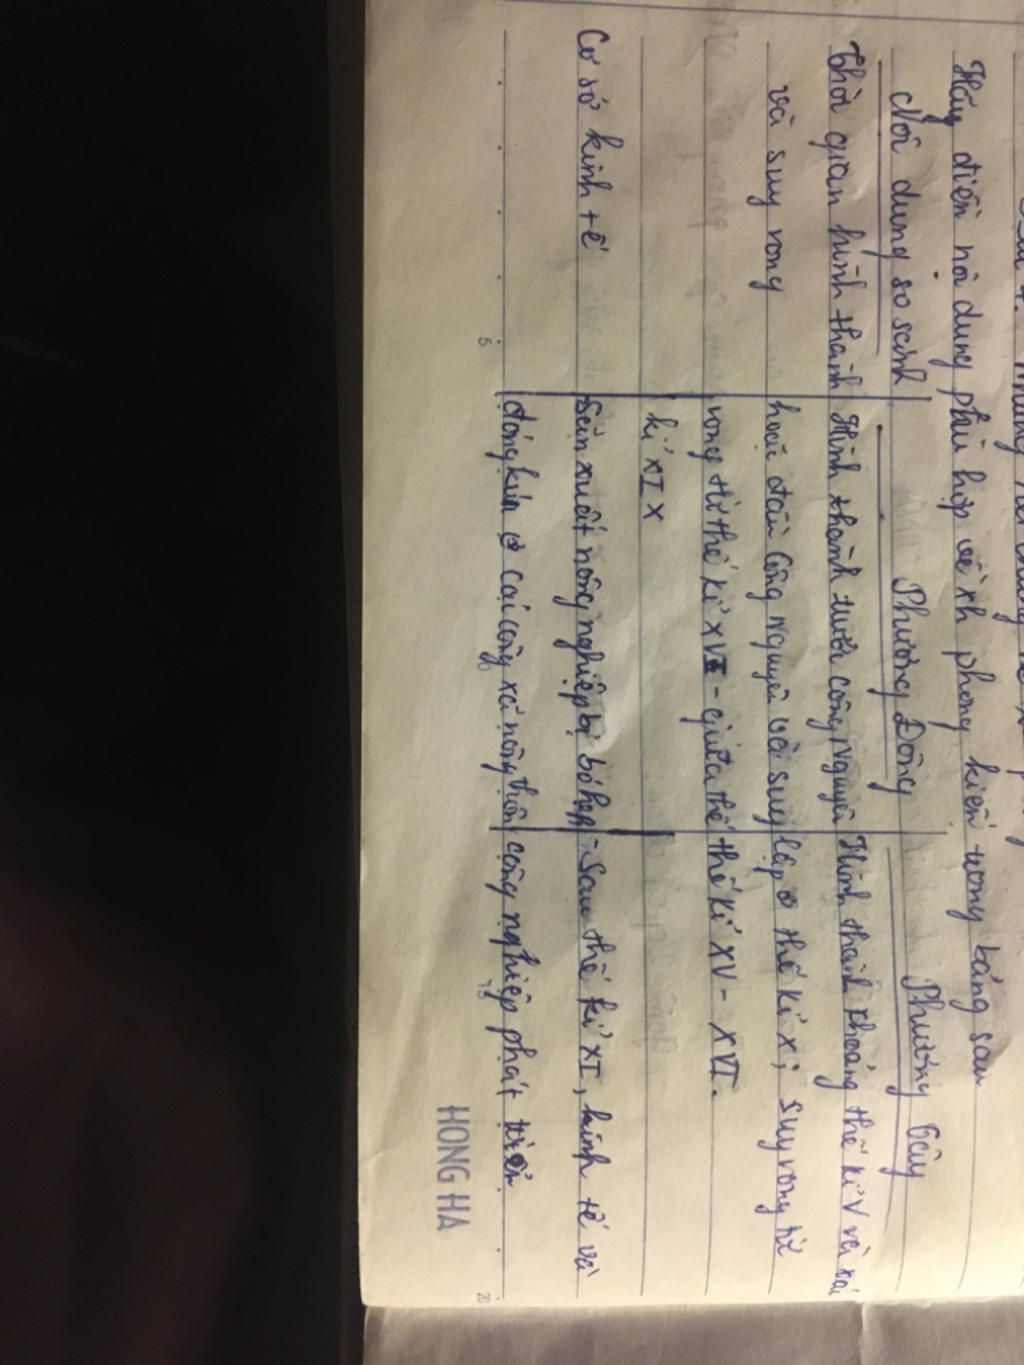 Câu 4.
Hãy điền nội dung phù hợp về xh phong kiến trong bảng sau
Nội dung so sánh Phương Đông Phương Tây
Thời gian hình thành Hình thành trước công nguyên Hình thành khoảng thế kỉ V và xác
và suy vong hoặc đầu Công nguyên và suy lập ở thế kỉ X; suy vong từ
vong từ thế kỉ XVI - giữa thế thế kỉ XV - XVI.
kỉ XIX
Cơ sở kinh tế Sản xuất nông nghiệp bị bó hẹp - Sau thế kỉ XI, kinh tế và
đóng kín ở cái công xã nông thôn công nghiệp phát triển
5 10 15 20
HONG HA